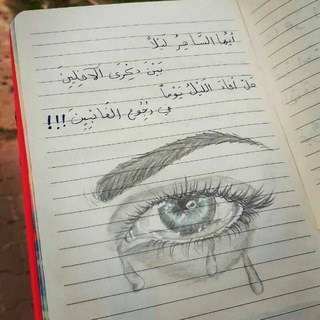 أيُّهَا السَّاهِرُ لَيْلاً
بَيْنَ ذِكْرَى الآفِلِينَ
هَلْ أَفَادَ اللَّيْلُ يَوْماً
في رُجُوعِ الغَائِبِينَ !!!